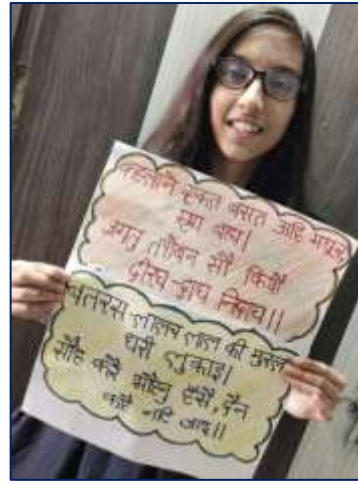 कहलाने एकत बसत अहि मयूर,
मृग बाघ।
जगतु सौ कियौ
दीरघ दाघ निदाघ।।
बतरस लालच लाल की मुरली
धरी लुकाइ।
सौंह करै भौंहनु हँसै, दैन
कहै नटि जाइ।।